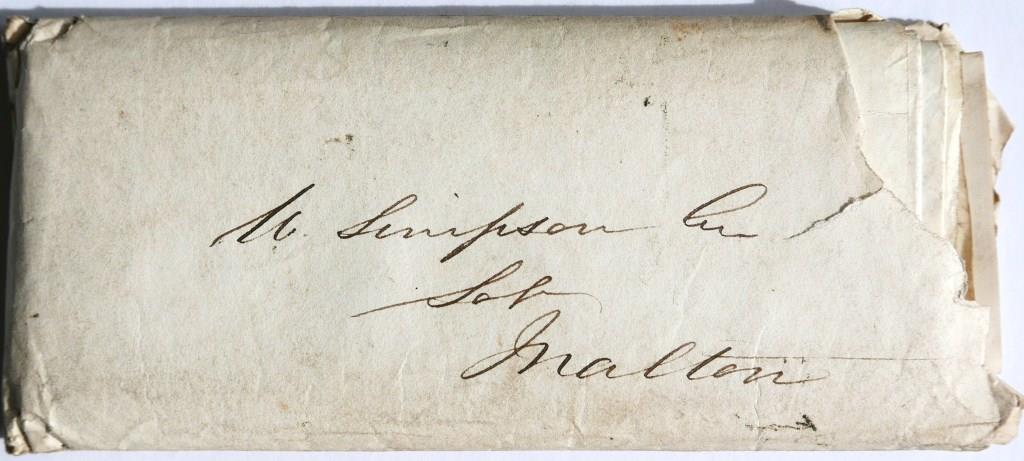 W. Simpson
Sol
Malton